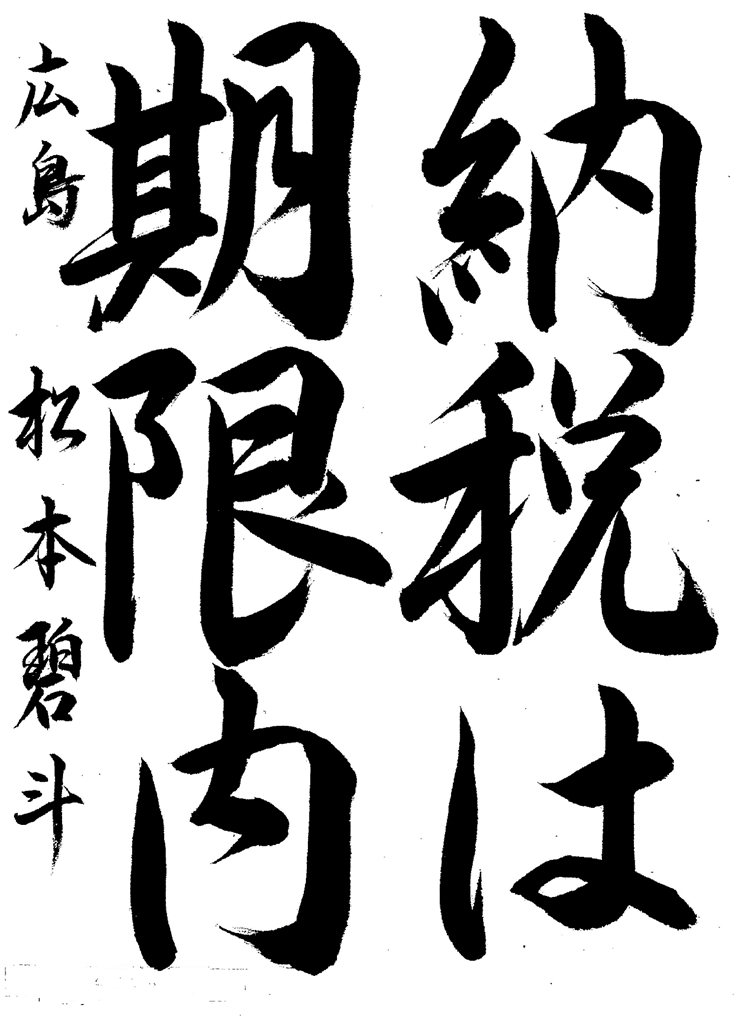 納税は
期限内
広島 松本碧斗